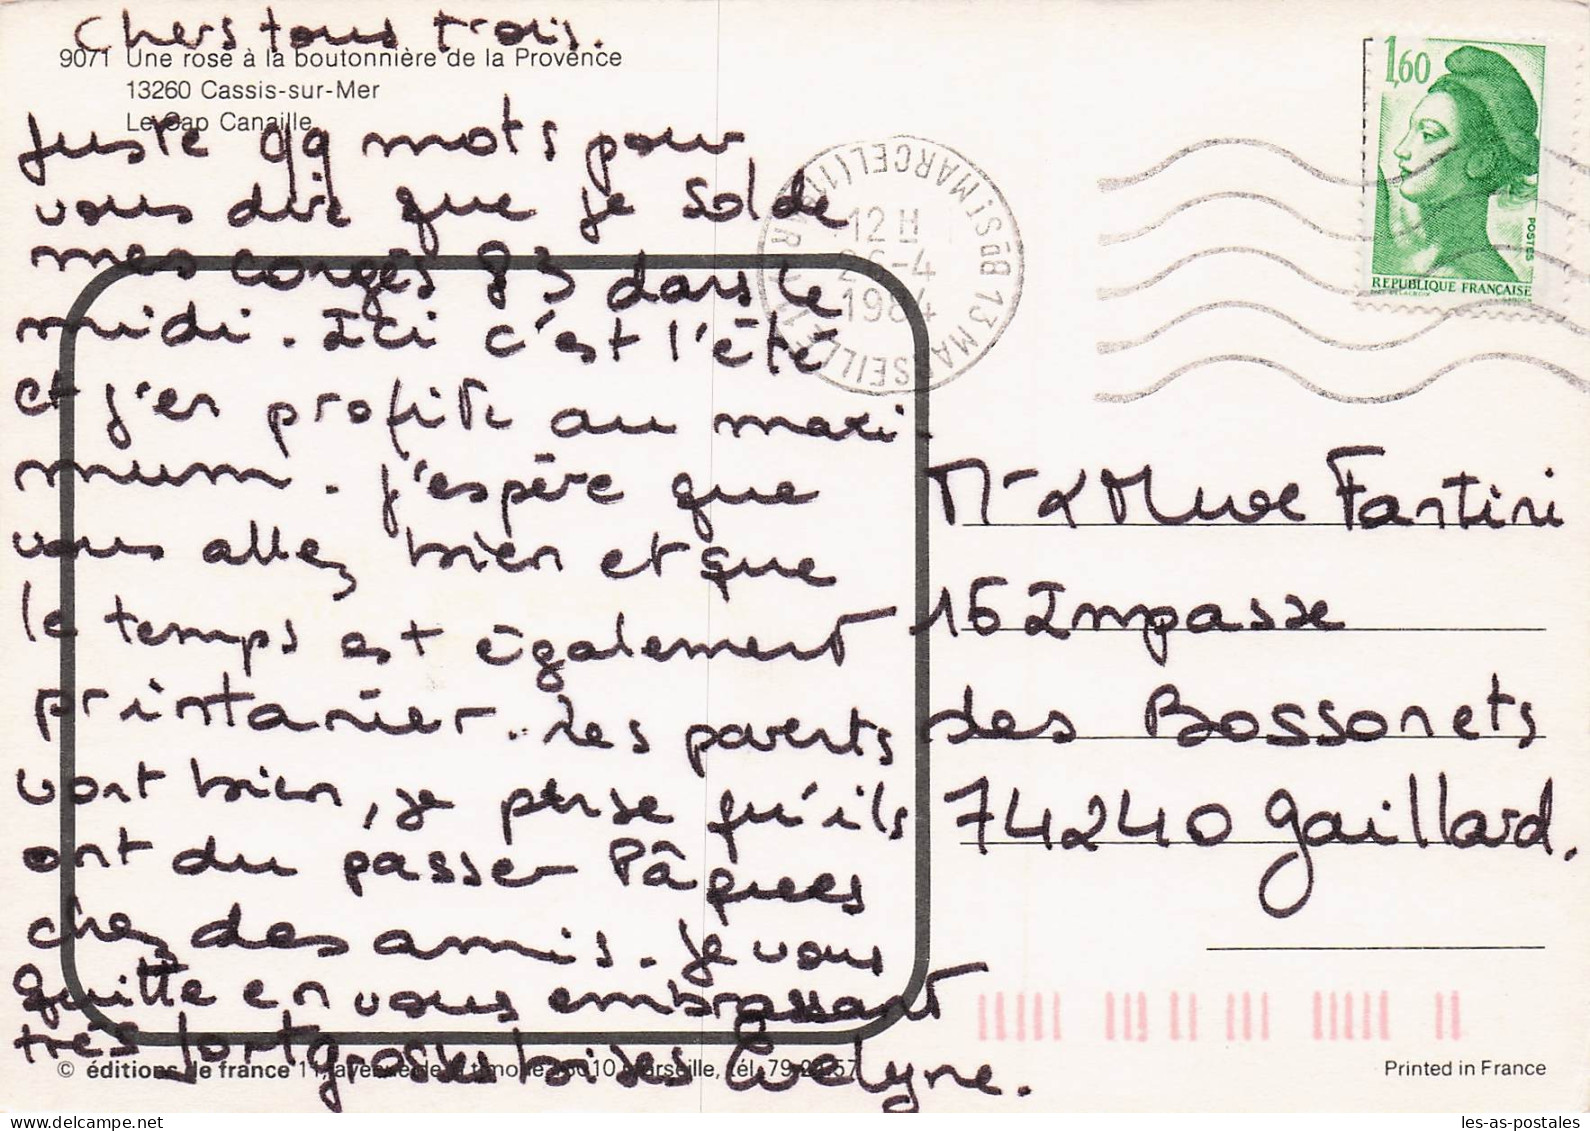 Chers tous trois.
9071 Une rose à la boutonnière de la Provence
13260 Cassis-sur-Mer
Le Cap Canaille
Juste qq mots pour
vous dire que je solde
mes congés 83 dans le
midi. Ici c'est l'été
et j'en profite au maxi-
mum. J'espère que
vous allez bien et que
le temps est également
printanier. Les parents
vont bien, je pense qu'ils
ont du passer Pâques
chez des amis. Je vous
quitte en vous embrassant
très fort grosses bises Evelyne.
© éditions de france 11, avenue de la timone, 13010 Marseille, tél. 79
1,60
POSTES
REPUBLIQUE FRANÇAISE
13 MARSEILLE St MARCEL
12 H
26-4
1984
Mr & Mme Fantini
16 Impasse
des Bossonets
74240 Gaillard.
Printed in France
les-as-postales